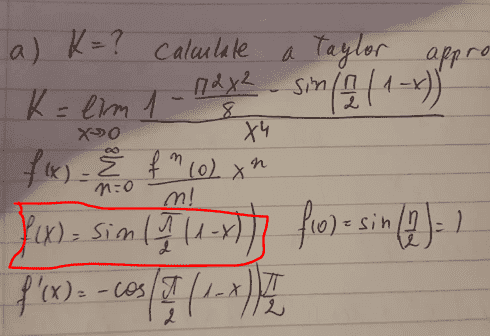 a) K = ? calculate a Taylor appro
K = lim x→0 (1 - π²x²/8 - sin(π/2 (1-x))) / x⁴
f(x) = ∞ Σ n=0 fⁿ(0)/n! xⁿ
f(x) = sin(π/2 (1-x)) f(0) = sin(π/2) = 1
f'(x) = -cos(π/2 (1-x)) π/2